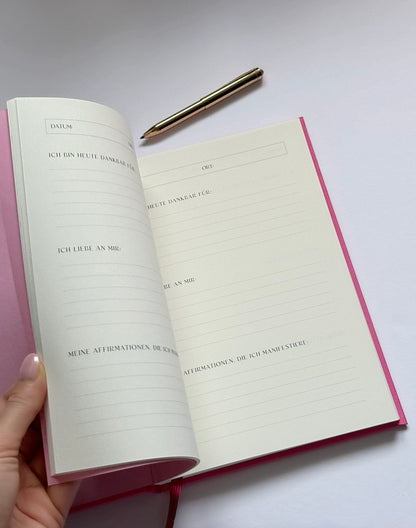 DATUM:
ICH BIN HEUTE DANKBAR FÜR:
ICH LIEBE AN MIR:
MEINE AFFIRMATIONEN, DIE ICH
ORT:
HEUTE DANKBAR FÜR:
BE AN MIR:
AFFIRMATIONEN, DIE ICH MANIFESTIERE: